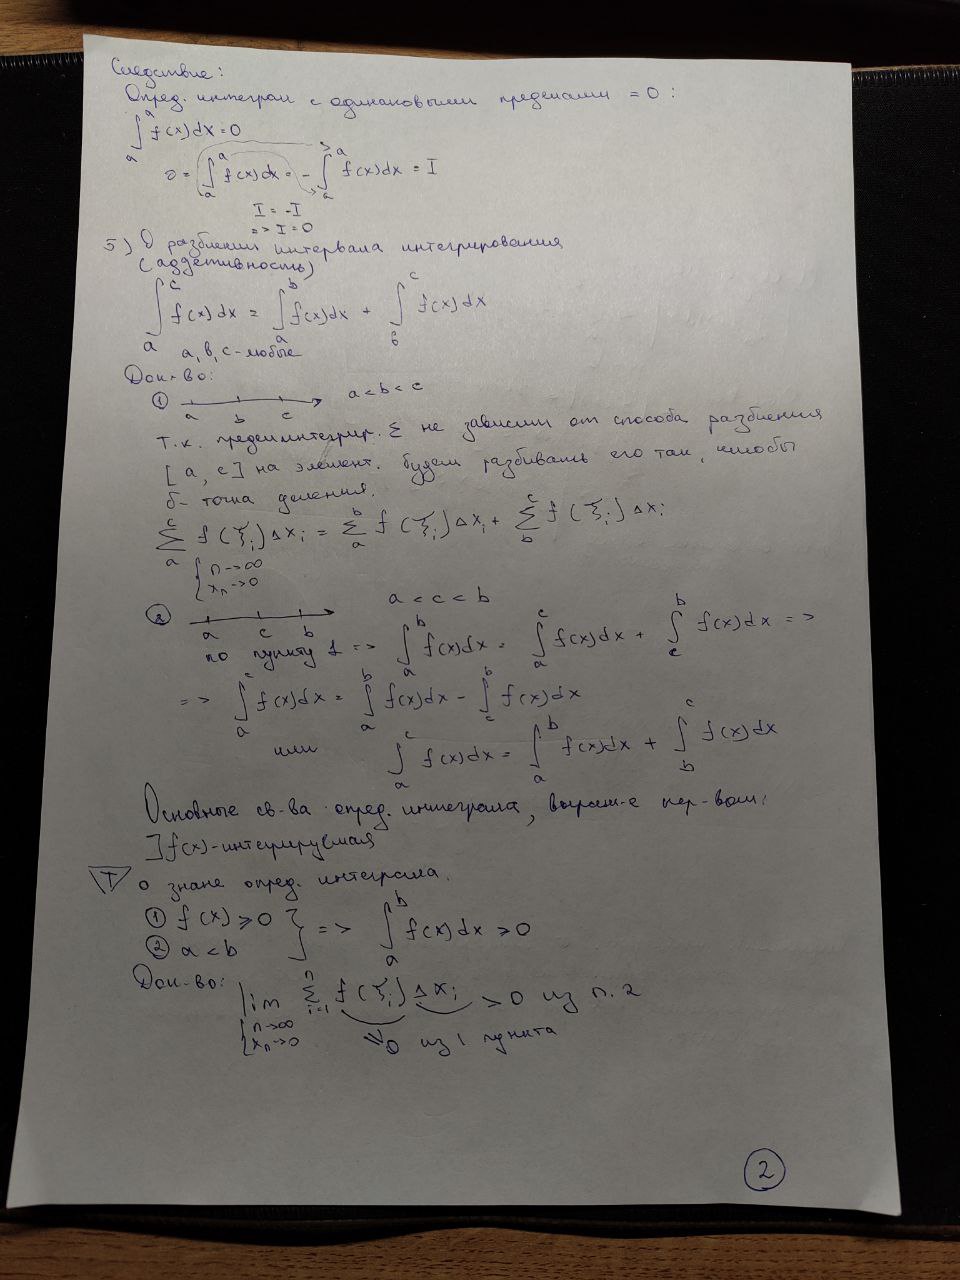 Следствие:
Опред. интеграл с одинаковыми пределами = 0:
∫ₐᵃ f(x)dx = 0
0 = ∫ₐᵃ f(x)dx = - ∫ₐᵃ f(x)dx = I
I = -I
=> I = 0
5) О разбиении интервала интегрирования
(аддетивность)
∫ₐᶜ f(x)dx = ∫ₐᵇ f(x)dx + ∫_b^c f(x)dx
a, b, c - любые
Док-во:
① a b c a < b < c
Т.к. предел интегрир. Σ не зависим от способа разбиения
[a, c] на элемент. будем разбивать его так, чтобы
б - точка деления.
Σ_a^c f(ξi)Δxi = Σ_a^b f(ξi)Δxi + Σ_b^c f(ξi)Δxi
{ n→∞
xn→0
② a c b a < c < b
по пункту 1 => ∫_a^b f(x)dx = ∫_a^c f(x)dx + ∫_c^b f(x)dx =>
=> ∫_a^c f(x)dx = ∫_a^b f(x)dx - ∫_c^b f(x)dx
или ∫_a^c f(x)dx = ∫_a^b f(x)dx + ∫_b^c f(x)dx
Основные св-ва опред. интеграла, выраж-е нер-вом:
]f(x)-интегрируемая
T о знаке опред. интеграла.
① f(x) ⩾ 0
② a < b } => ∫_a^b f(x)dx ⩾ 0
Док-во: lim Σ_{i=1}^n f(ξi) Δxi > 0 из п. 2
{ n→∞
xn→0
⩾ 0 из 1 пункта
2